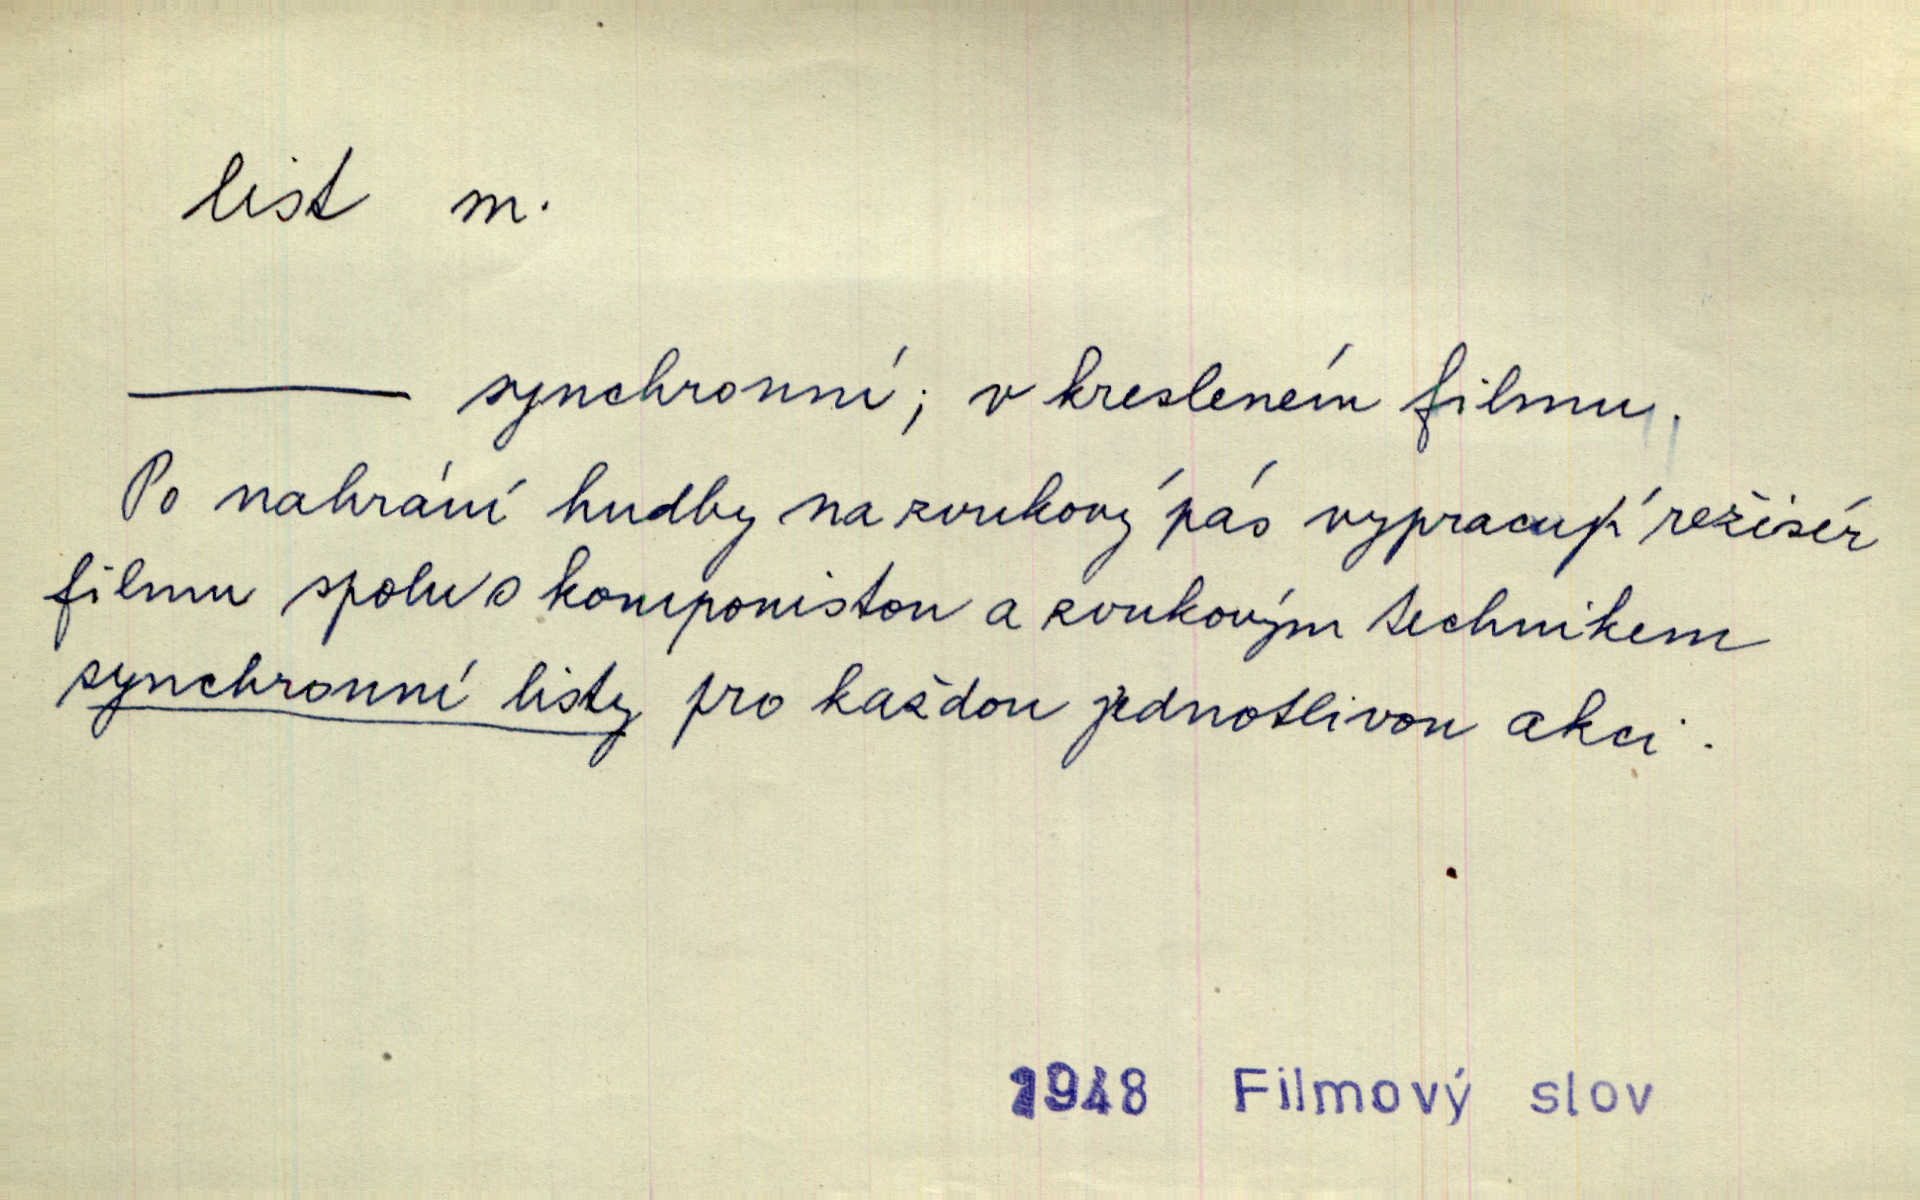 list m.
——— synchronní; v kresleném filmu.
Po nahrání hudby na zvukový pás vypracují režisér
filmu spolu s komponistou a zvukovým technikem
synchronní listy pro každou jednotlivou akci.
1948 Filmový slov